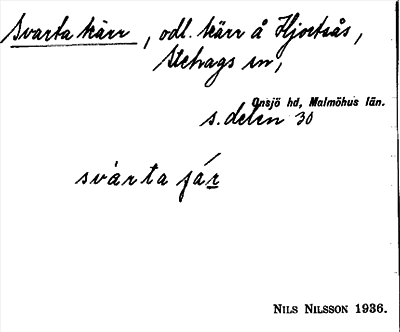 Svarta kärr, odl. kärr å Hjortsås,
Stehags sn,
Onsjö hd, Malmöhus län.
s. delen 30
svárta ʃár
NILS NILSSON 1936.